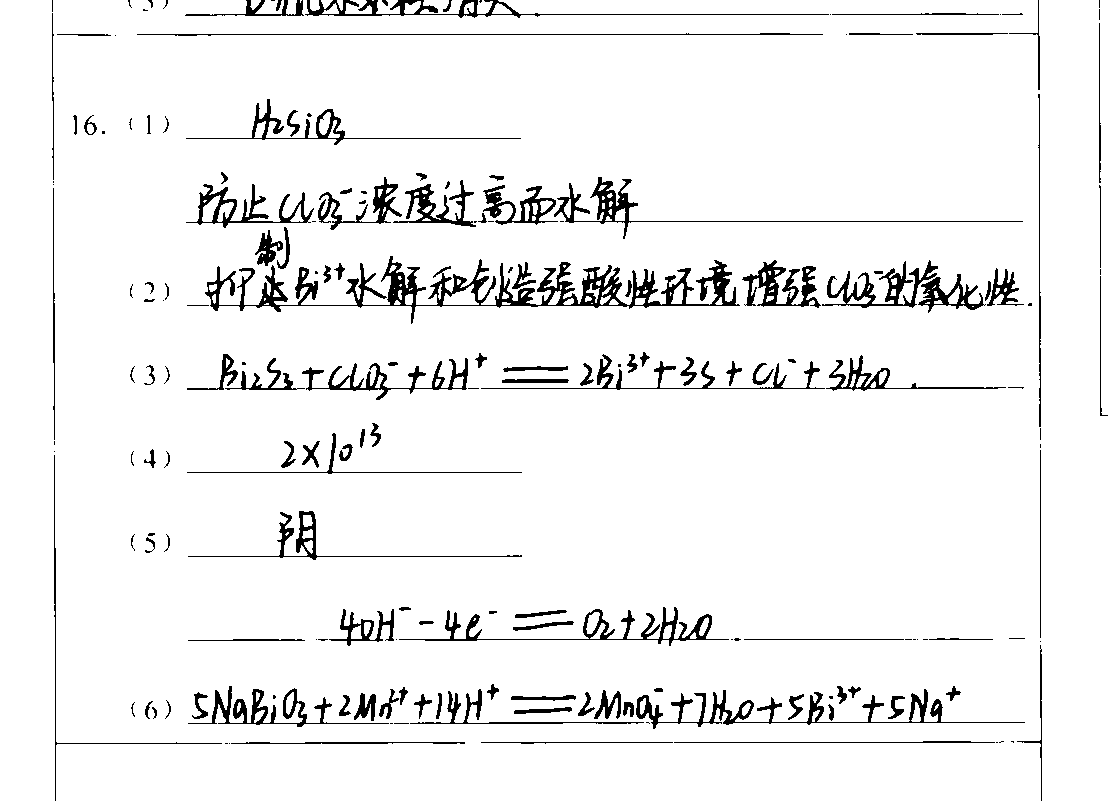 (3)
16. (1) H₂SiO₃
防止ClO₃⁻浓度过高而水解
(2) 抑制Bi³⁺水解和创造强酸性环境增强ClO₃⁻的氧化性.
(3) Bi₂S₃+ClO₃⁻+6H⁺══2Bi³⁺+3S+Cl⁻+3H₂O.
(4) 2×10¹³
(5) 阴
4OH⁻-4e⁻══O₂+2H₂O.
(6) 5NaBiO₃+2Mn²⁺+14H⁺══2MnO₄⁻+7H₂O+5Bi³⁺+5Na⁺